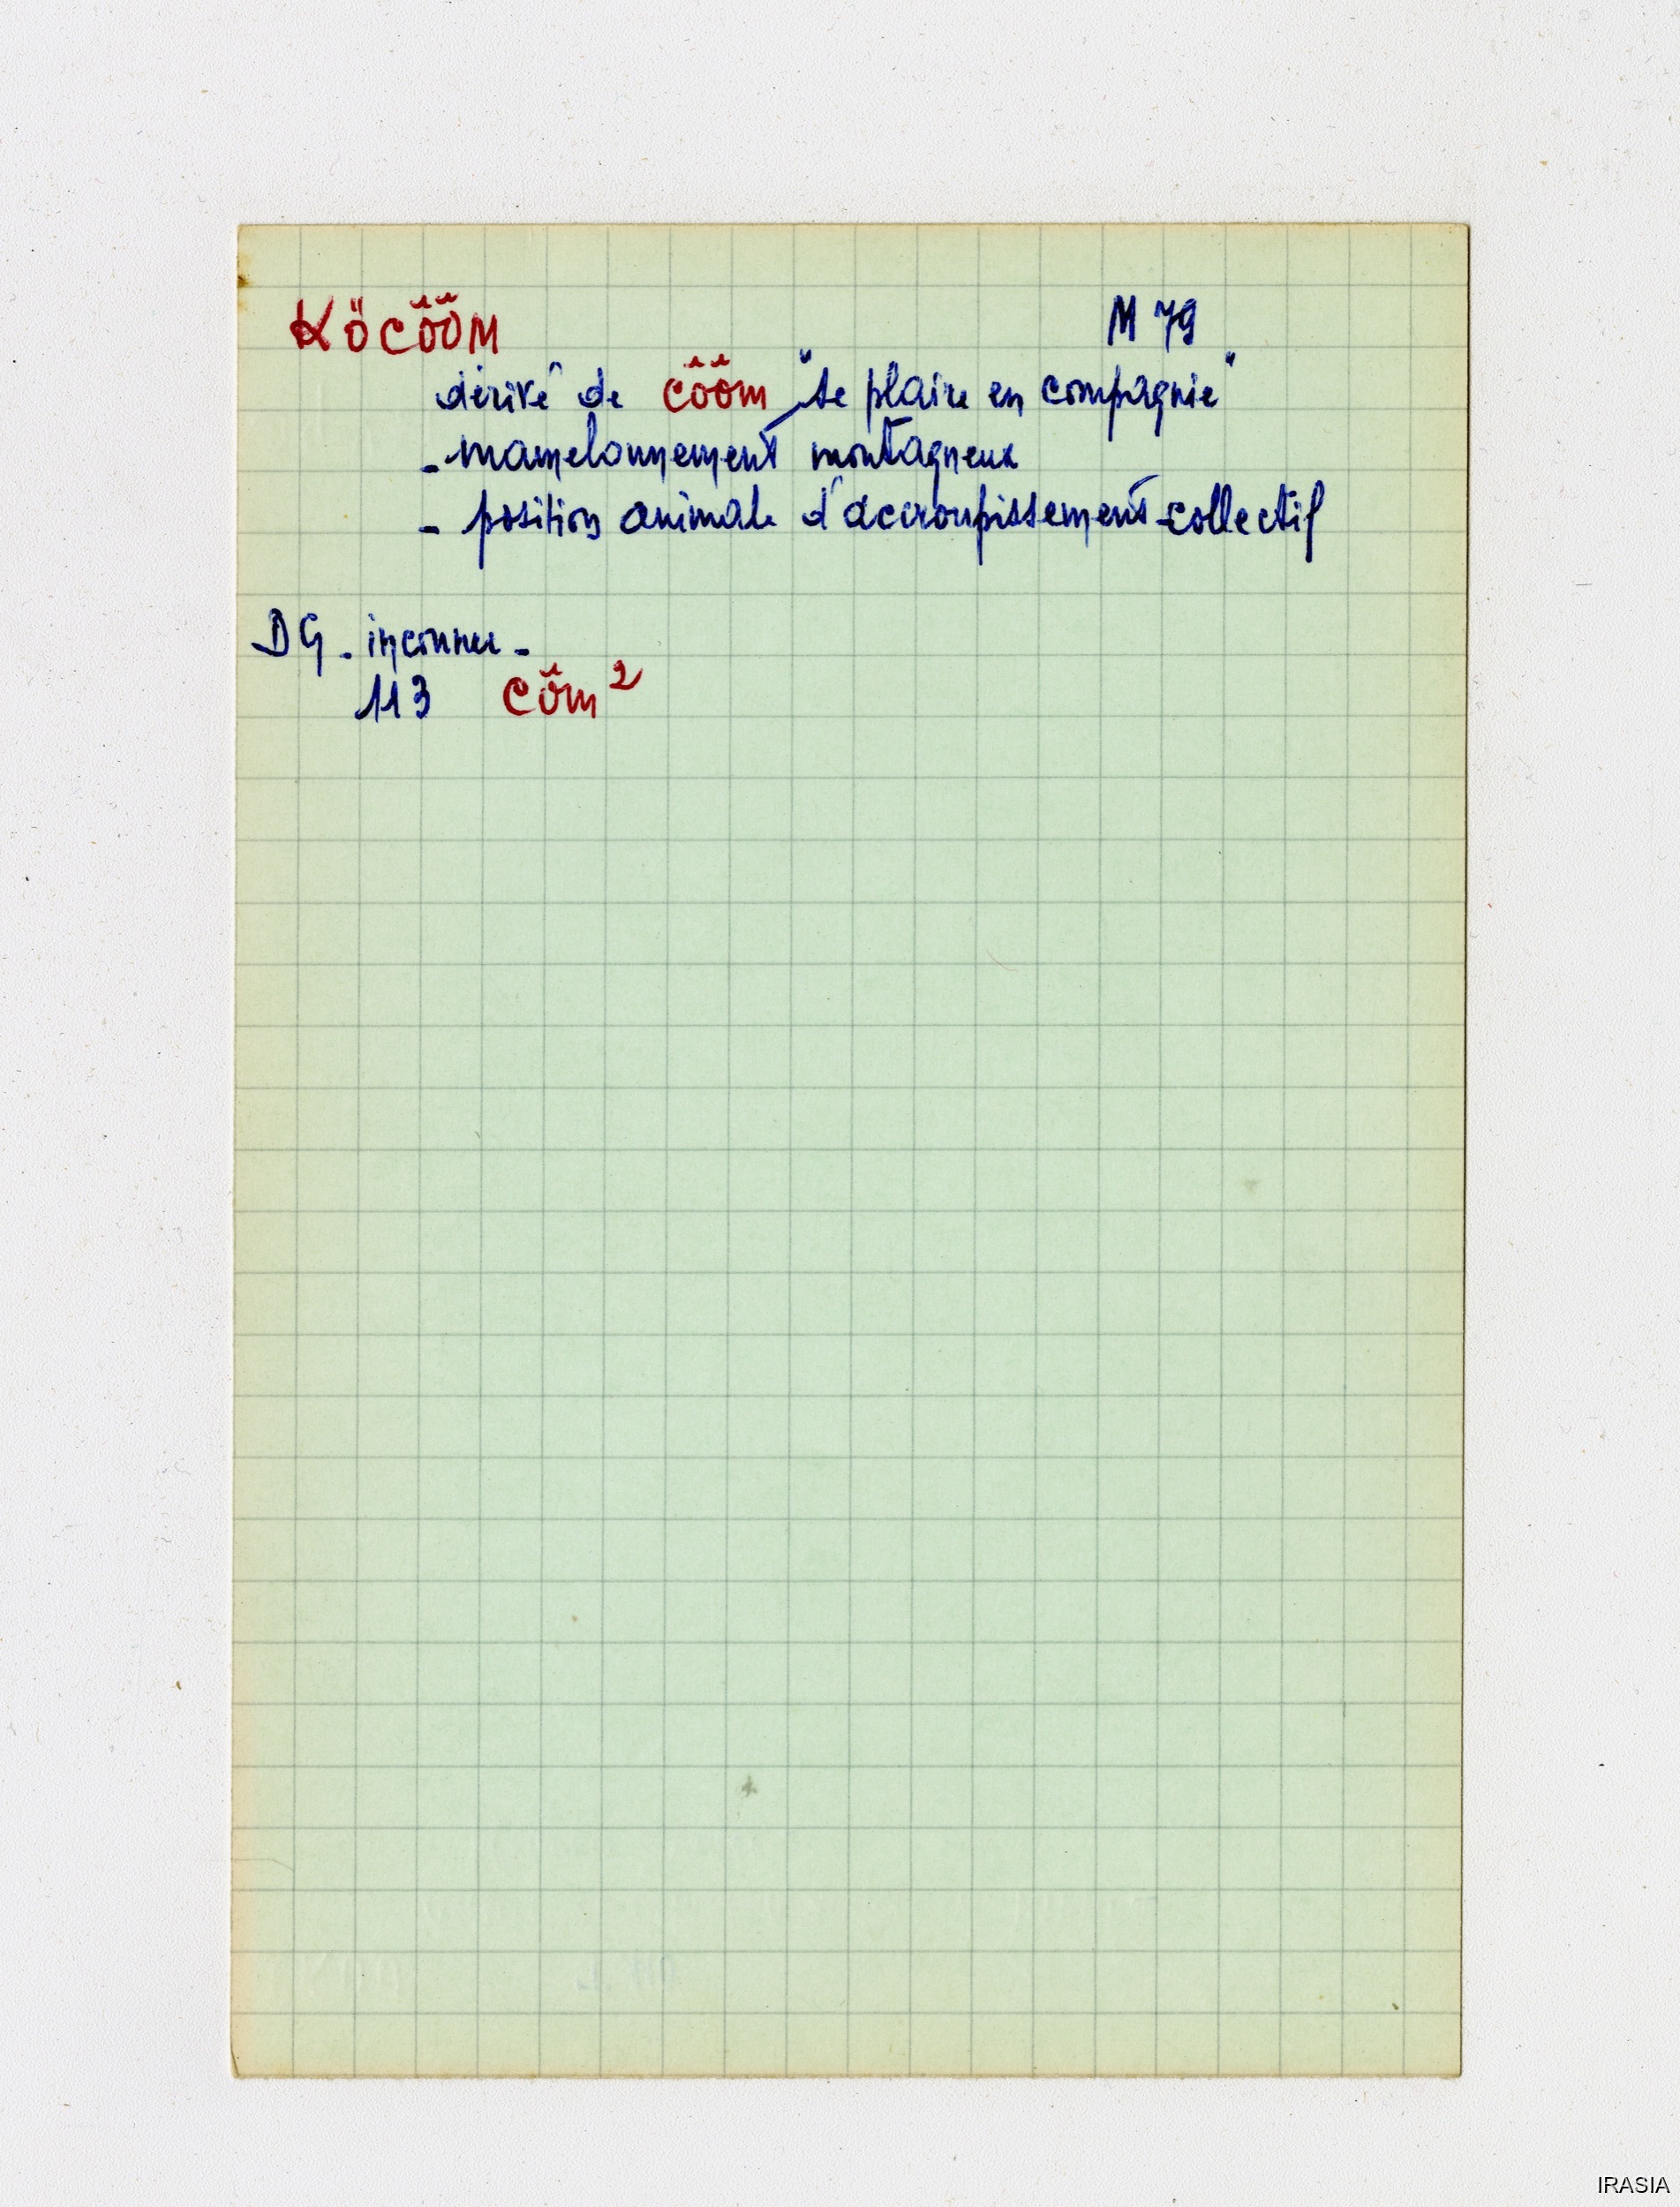 KÖCỖỖM M 79
dérivé de cỗỗm "se plaire en compagnie"
- mamelonnement montagneux
- position animale d'accroupissement collectif
DG - inconnu -
113 cỗm²
IRASIA